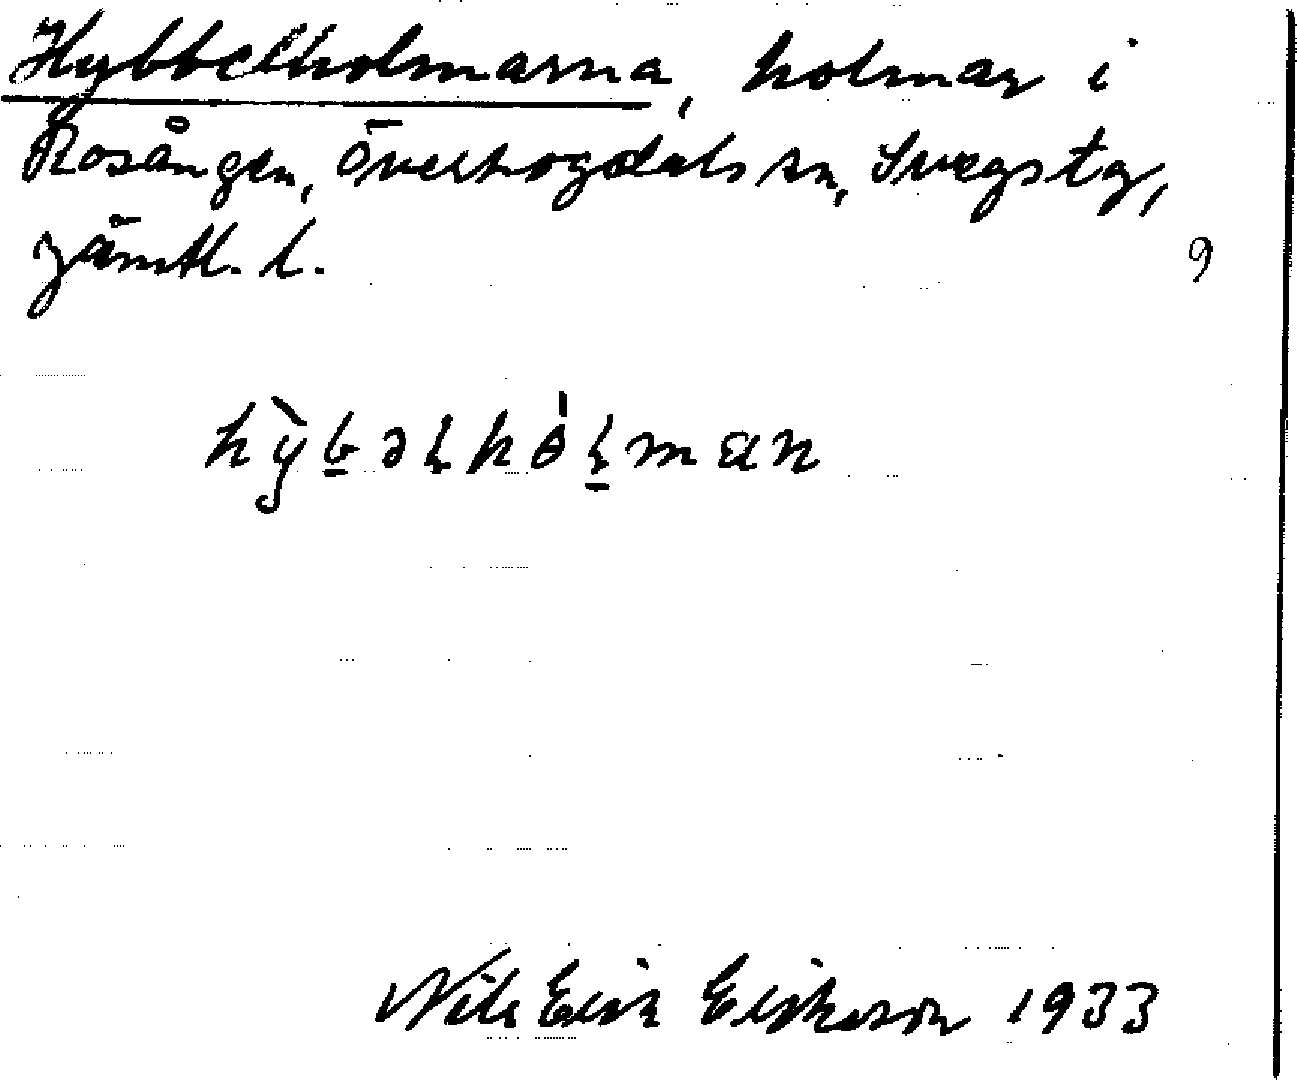 Hybbelholmarna, holmar i
Rosången, Överhogdals sn, Svegs tg,
Jämtl. l.
9
hỳb̲əɭhòɭ̲ман
Nils Erik Eriksson 1933